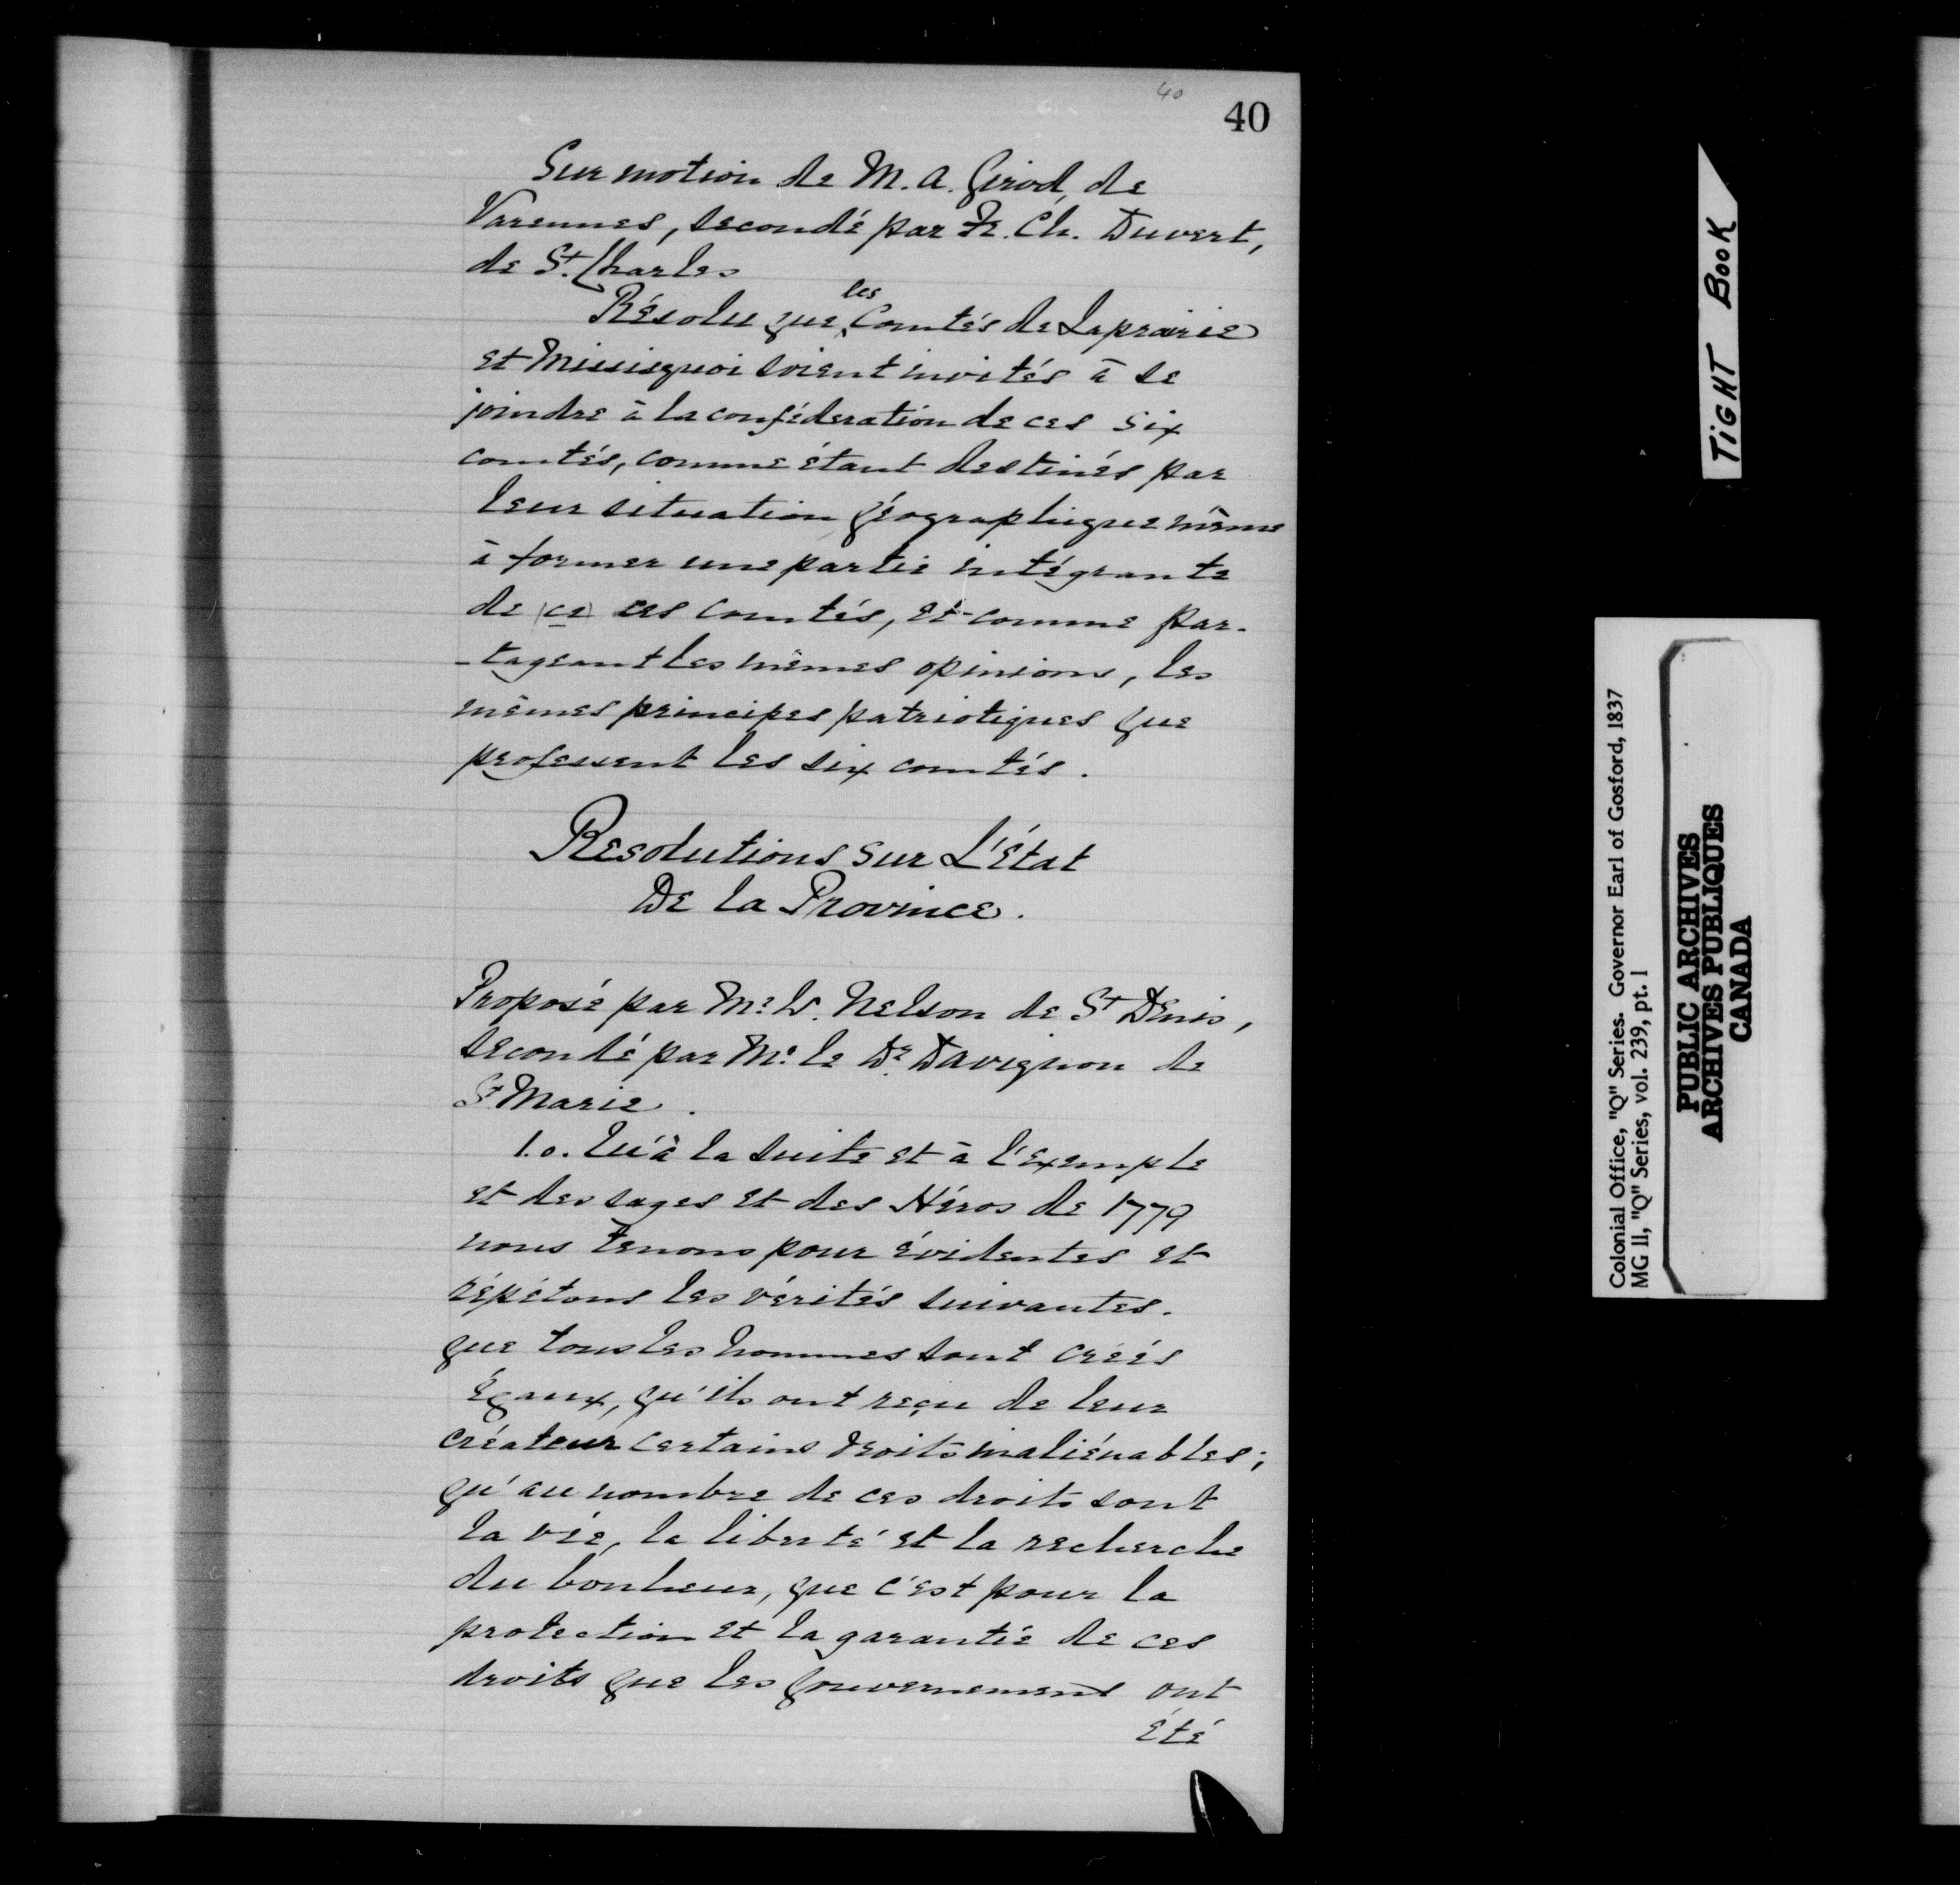 40
40
Sur motion de M. A. Girod, de
Varennes, secondé par Fr. Ch. Duvert,
de St. Charles
Résolu que les Comtés de Laprairie
et Missisquoi soient invités à se
joindre à la confédération de ces six
comtés, comme étant destinés par
leur situation géographique même
à former une partie intégrante
de (ce) ces comtés, et comme par-
-tageant les mêmes opinions, les
mêmes principes patriotiques que
professent les six comtés.
Resolutions sur L'État
De la Province.
Proposé par Mr. W. Nelson de St Denis,
secondé par Mr. le Dr. Davignon de
St Marie.
1.o. Qu'à la suite et à l'exemple
et des sages et des Héros de 1779
nous tenons pour évidentes et
répétons les vérités suivantes.
que tous les hommes sont créés
Égaux, qu'ils ont reçu de leur
créateur certains droits inaliénables;
qu'au nombre de ces droits sont
la vie, la liberté et la recherche
du bonheur, que c'est pour la
protection et la garantie de ces
droits que les gouvernements ont
été
TIGHT BOOK
Colonial Office, "Q" Series. Governor Earl of Gosford, 1837
MG 11, "Q" Series, vol. 239, pt. 1
PUBLIC ARCHIVES
ARCHIVES PUBLIQUES
CANADA